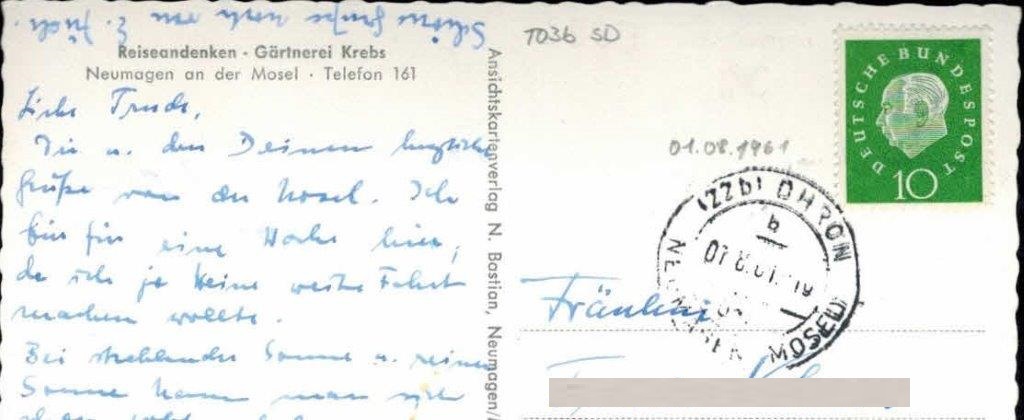 Schöne Grüße noch von
Reiseandenken · Gärtnerei Krebs
Neumagen an der Mosel · Telefon 161
Liebe Trude,
Dir u. den Deinen herzliche
Grüße von der Mosel. Ich
bin für eine Woche hier,
da ich ja keine weite Fahrt
machen wollte.
Bei strahlender Sonne u. reiner
Sonne kann man sich
Ansichtskartenverlag N. Bastian, Neumagen/
TO36 SD
01.08.1961
DEUTSCHE BUNDESPOST
10
(22b) DHRON
b
MOSEL
Fräulein